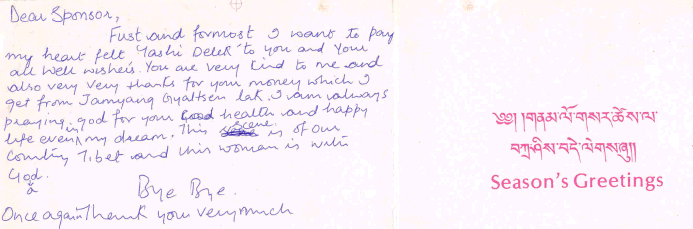 Dear Sponsor,
Fust and formost I want to pay
my heart felt 'Tashi Delek' to you and Your
all well wisheis. You are very kind to me and
also very very thanks for your money which I
get from Jamyang Gyaltsen lak. I am always
praying god for your good health and happy
life even in my dream. This scene is of our
Country Tibet and this woman is with
God.
Bye Bye.
Once again Thank your very much
༄༅། །གནམ་ལོ་གསར་ཚེས་ལ་
བཀྲ་ཤིས་བདེ་ལེགས་ཞུ།།
Season's Greetings